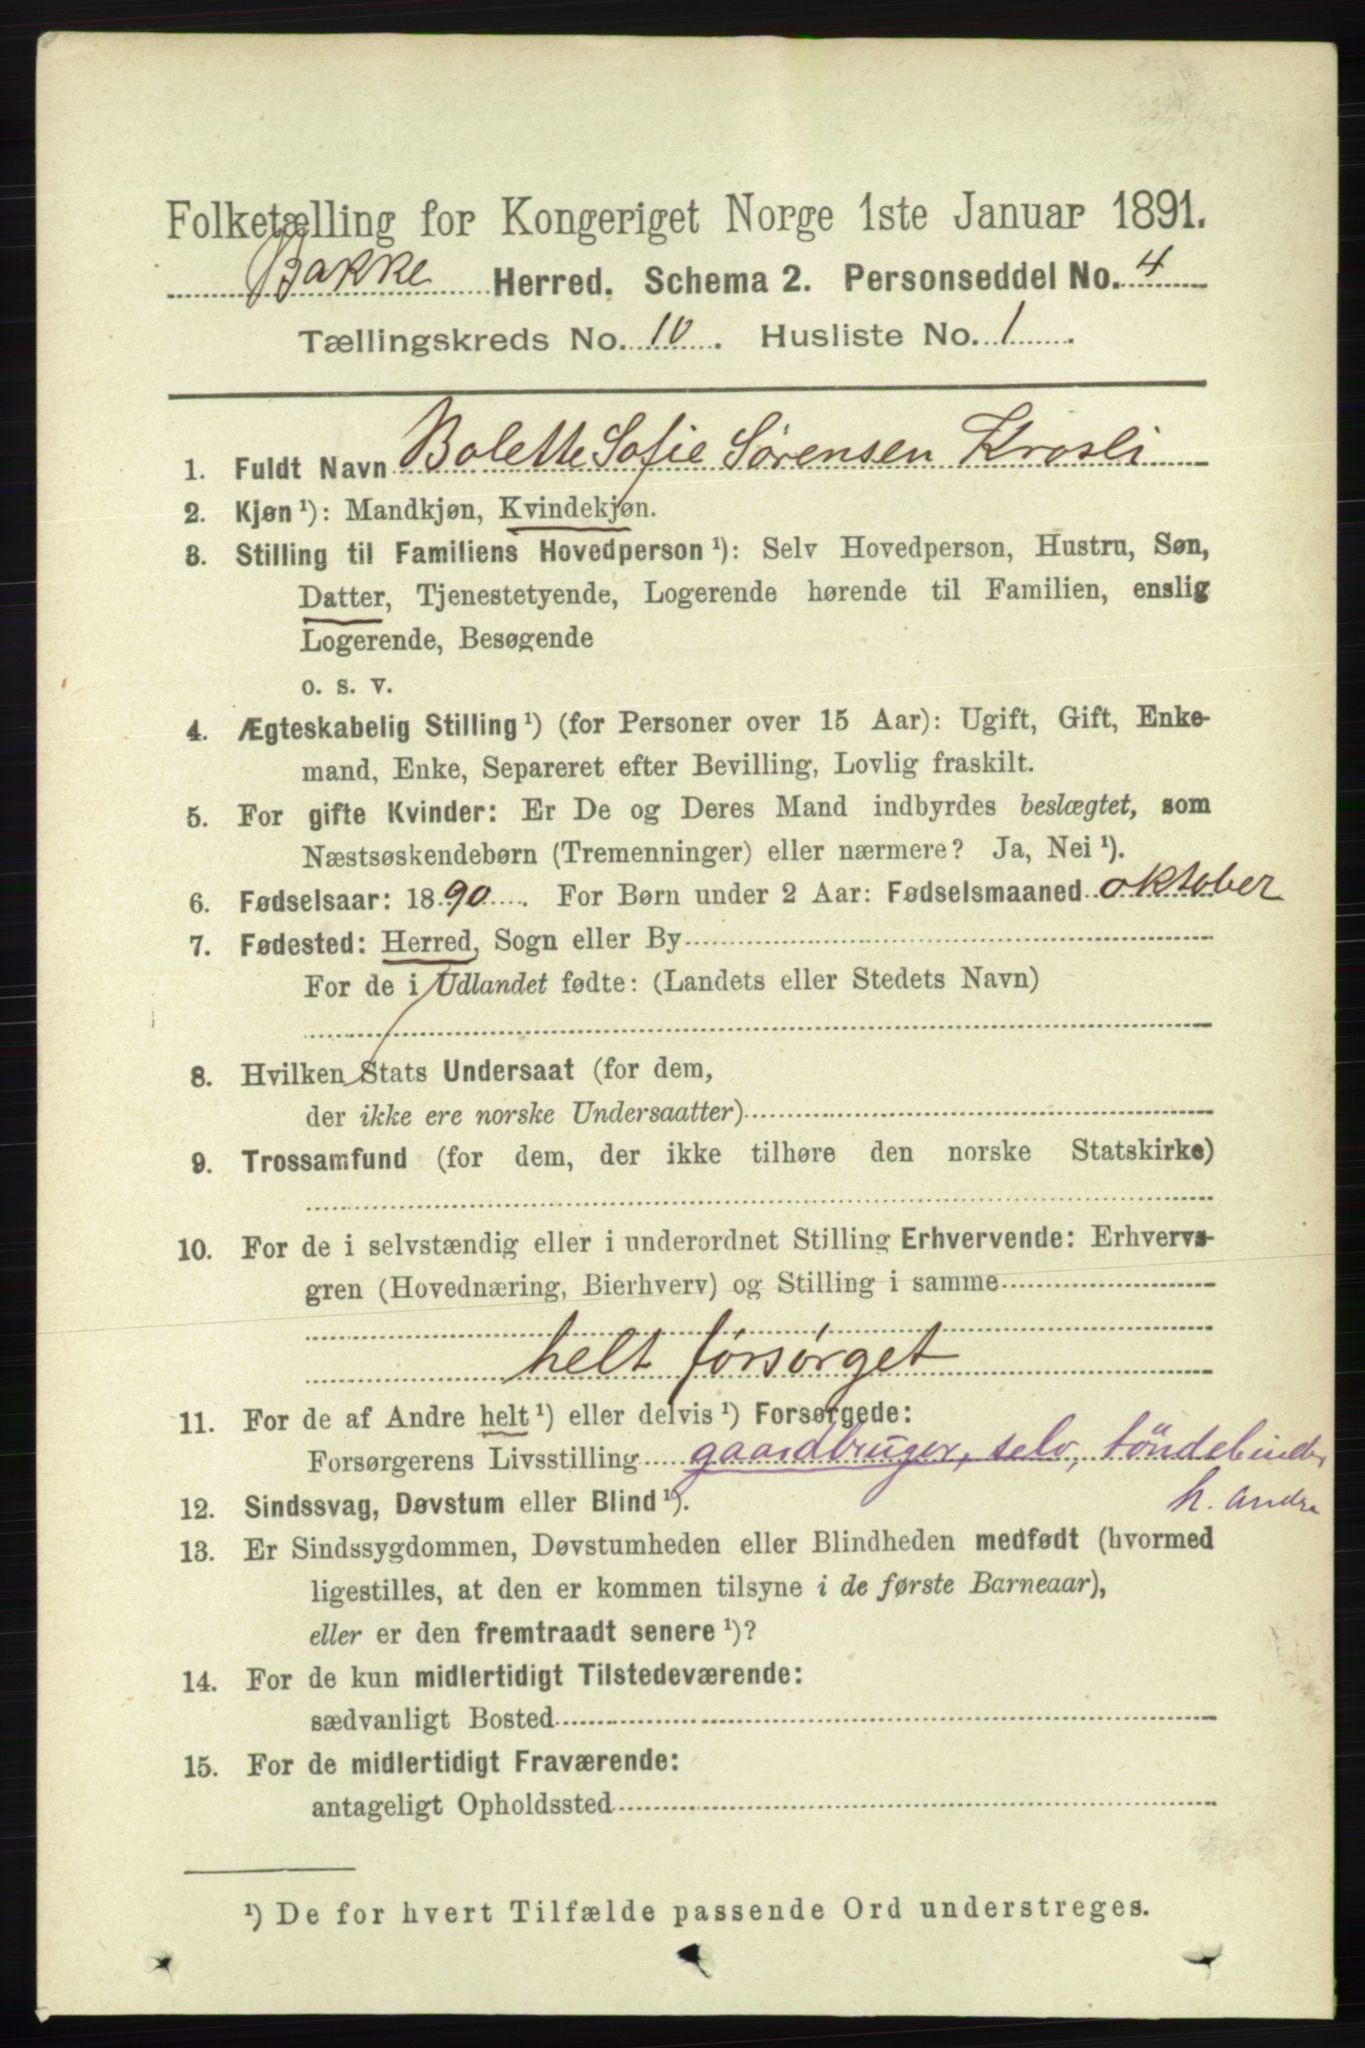 Folketælling for Kongeriget Norge 1ste Januar 1891.
Bakke Herred. Schema 2. Personseddel No. 4
Tællingskreds No. 10. Husliste No. 1.
1. Fuldt Navn Bolette Sofie Sørensen Krosli
2. Kjøn ¹): Mandkjøn, Kvindekjøn.
3. Stilling til Familiens Hovedperson ¹): Selv Hovedperson, Hustru, Søn,
Datter, Tjenestetyende, Logerende hørende til Familien, enslig
Logerende, Besøgende
o. s. v.
4. Ægteskabelig Stilling ¹) (for Personer over 15 Aar): Ugift, Gift, Enke-
mand, Enke, Separeret efter Bevilling, Lovlig fraskilt.
5. For gifte Kvinder: Er De og Deres Mand indbyrdes beslægtet, som
Næstsøskendebørn (Tremenninger) eller nærmere? Ja, Nei ¹).
6. Fødselsaar: 1890. For Børn under 2 Aar: Fødselsmaaned oktober
7. Fødested: Herred, Sogn eller By
For de i Udlandet fødte: (Landets eller Stedets Navn)
8. Hvilken Stats Undersaat (for dem,
der ikke ere norske Undersaatter)
9. Trossamfund (for dem, der ikke tilhøre den norske Statskirke)
10. For de i selvstændig eller i underordnet Stilling Erhvervende: Erhvervs-
gren (Hovednæring, Bierhverv) og Stilling i samme
helt forsørget
11. For de af Andre helt ¹) eller delvis ¹) Forsørgede:
Forsørgerens Livsstilling gaardbruger, selv, töndebinder
h. andre
12. Sindssvag, Døvstum eller Blind ¹).
13. Er Sindssygdommen, Døvstumheden eller Blindheden medfødt (hvormed
ligestilles, at den er kommen tilsyne i de første Barneaar),
eller er den fremtraadt senere ¹)?
14. For de kun midlertidigt Tilstedeværende:
sædvanligt Bosted
15. For de midlertidigt Fraværende:
antageligt Opholdssted
¹) De for hvert Tilfælde passende Ord understreges.